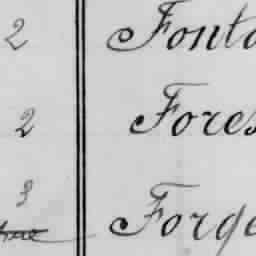 2 Fonta
2 Fores
3
Forge